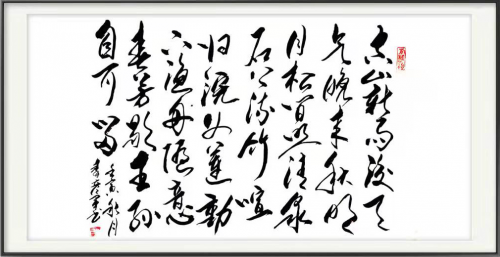 空山新雨後天
氣晚来秋明
月松間照清泉
石上流竹喧
歸浣女蓮動
下漁舟隨意
春芳歇王孫
自可留
壬寅秋月